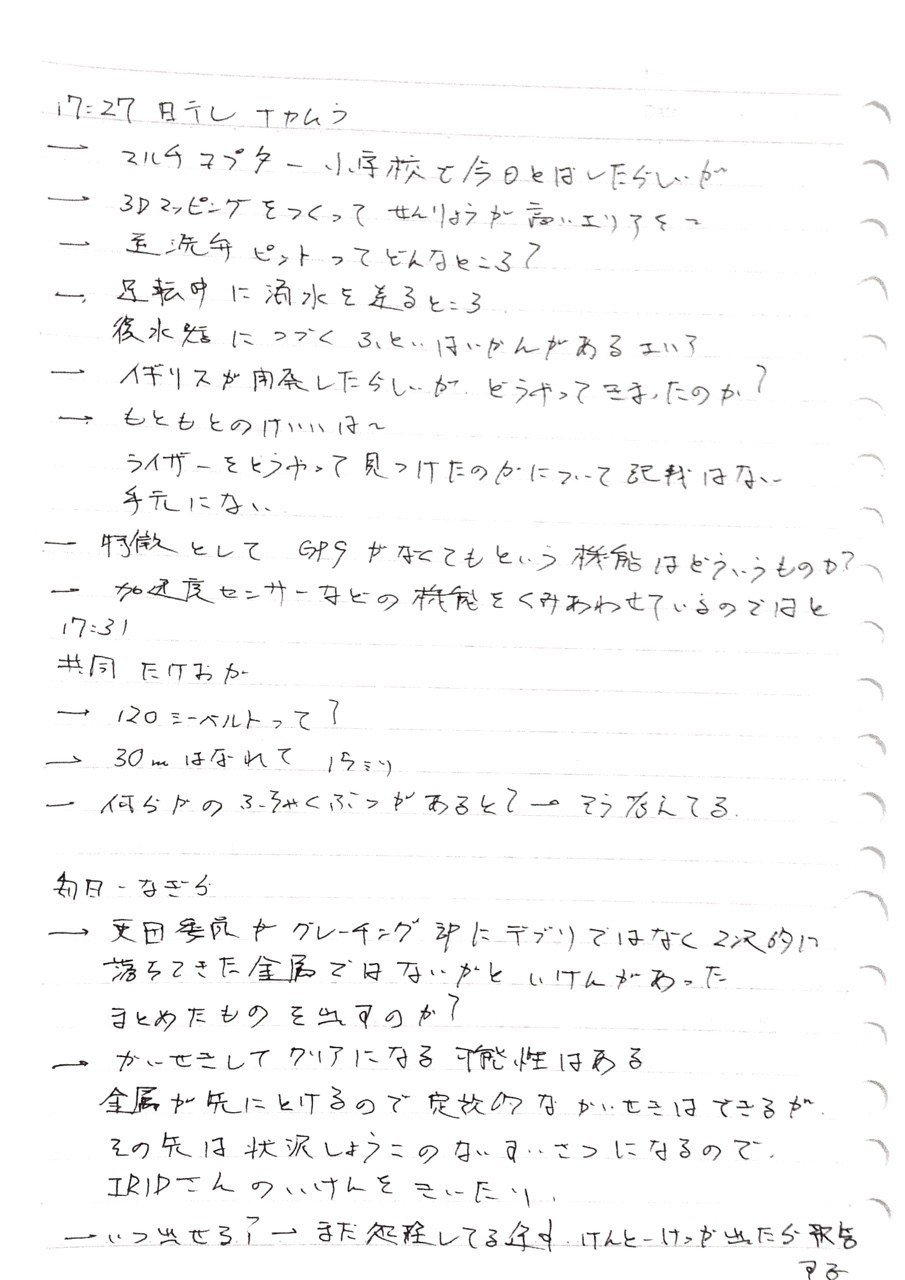 17:27 日テレ ナカムラ
→ マルチコプター 小学校で今日とばしたらしいが
→ 3Dマッピングをつくって せんりょうが高いエリアを〜
→ 逆洗弁ピットってどんなところ?
→ 運転中に海水を送るところ
復水器につづくふといはいかんがあるエリア
→ イギリスが開発したらしいが どうやってきまったのか?
→ もともとのけいいは〜
ライザーをどうやって見つけたのかについて記載はない
手元にない
→ 特徴として GPSがなくてもという機能はどういうものか?
→ 加速度センサーなどの機能をくみあわせているのではと
17:31
共同 たけおか
→ 120ミリシーベルトって?
→ 30mはなれて 15ミリ
→ 何らかのふちゃくぶつがあると? → そう考えてる
毎日・なぎら
→ 更田委員がグレーチング部にデブリではなく2次的に
落ちてきた金属ではないかと いけんがあった
まとめたものを出すのか?
→ かいせきしてクリアになる可能性はある
金属が先にとけるので 定放的なかいせきはできるが
その先は状況しょうこのないすいさつになるので
IRIDさんのいけんをきいたり
→ いつ出せる? → まだ処理してる途中 けんとーけっか出たら報告
する